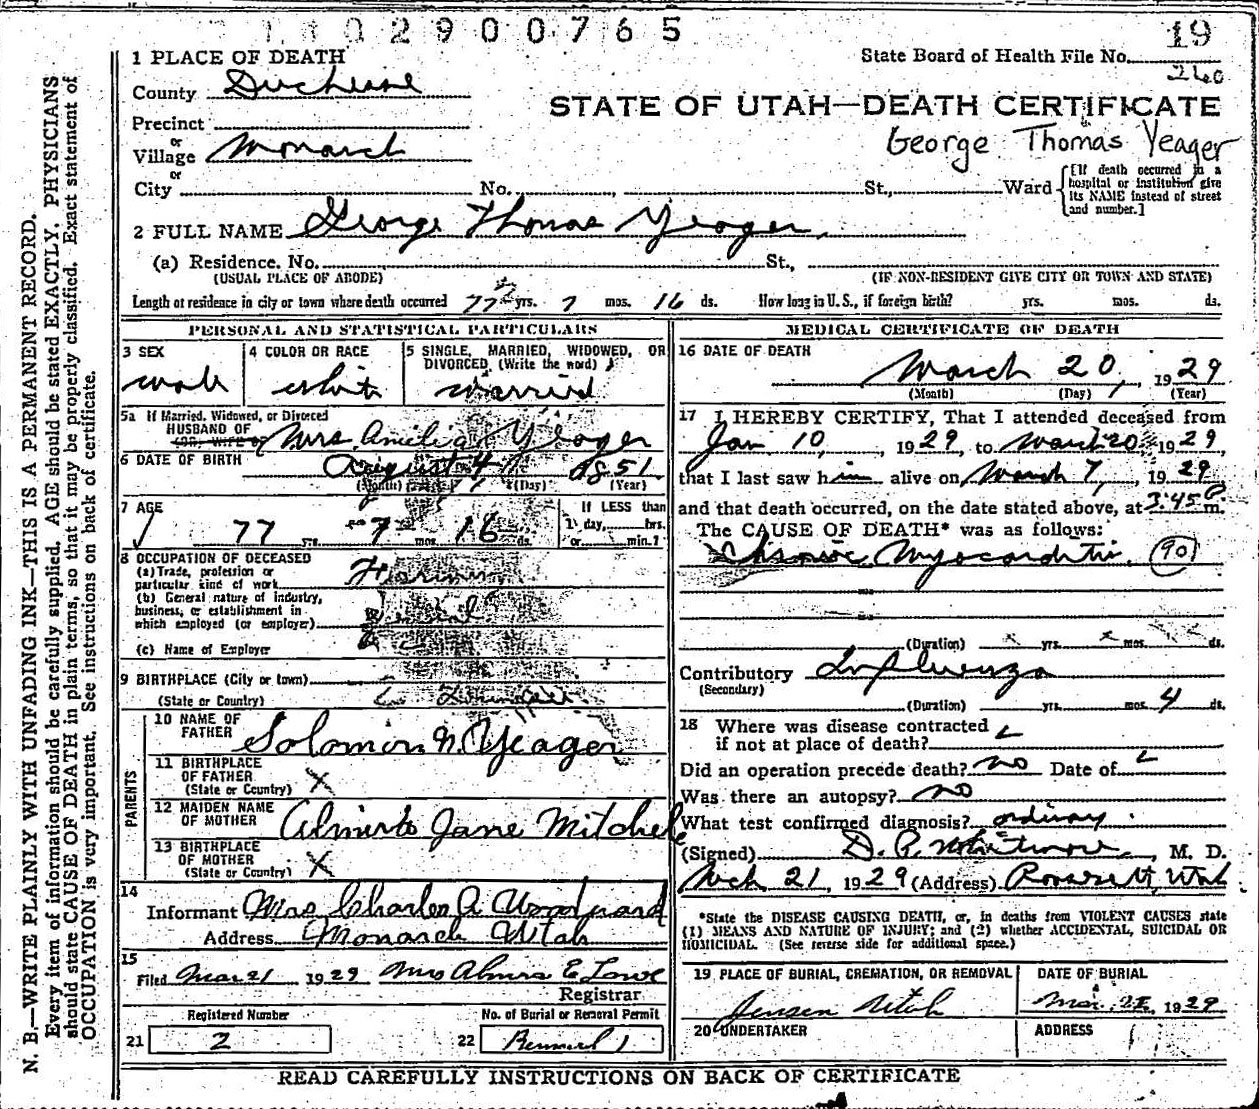 2900765
19
1 PLACE OF DEATH
State Board of Health File No.
260
County Duchesne
STATE OF UTAH—DEATH CERTIFICATE
Precinct
George Thomas Yeager
or
Village Monarch
or
City No. St., Ward
[If death occurred in a hospital or institution give its NAME instead of street and number.]
2 FULL NAME George Thomas Yeager
(a) Residence. No. St.,
(USUAL PLACE OF ABODE) (IF NON-RESIDENT GIVE CITY OR TOWN AND STATE)
Length of residence in city or town where death occurred yrs. 7 mos. 16 ds. How long in U. S., if foreign birth? yrs. mos. ds.
PERSONAL AND STATISTICAL PARTICULARS
3 SEX
male
4 COLOR OR RACE
white
5 SINGLE, MARRIED, WIDOWED, OR DIVORCED (Write the word)
married
5a If Married, Widowed, or Divorced
HUSBAND OF
(OR) WIFE OF Mrs. Amelia Yeager
6 DATE OF BIRTH August 4, 1851
(Month) (Day) (Year)
7 AGE
77 yrs. 7 mos. 16 ds.
If LESS than
1 day, hrs.
or min.?
8 OCCUPATION OF DECEASED
(a) Trade, profession or
particular kind of work Farming
(b) General nature of industry,
business, or establishment in
which employed (or employer)
(c) Name of Employer
9 BIRTHPLACE (City or town)
(State or Country)
PARENTS
10 NAME OF
FATHER Solomon N. Yeager
11 BIRTHPLACE
OF FATHER
(State or Country) X
12 MAIDEN NAME
OF MOTHER Jane Mitchele
13 BIRTHPLACE
OF MOTHER
(State or Country) X
14
Informant Mrs Charles A Woodward
Address Monarch Utah
15
Filed Mar 21 1929 Mrs E Lowe
Registrar
Registered Number
No. of Burial or Removal Permit
21 2
22 1
MEDICAL CERTIFICATE OF DEATH
16 DATE OF DEATH
March 20, 1929
(Month) (Day) (Year)
17 I HEREBY CERTIFY, That I attended deceased from
Jan 10, 1929, to March 20 1929,
that I last saw him alive on March 7, 1929
and that death occurred, on the date stated above, at 3:45 P m.
The CAUSE OF DEATH* was as follows:
Chronic Myocarditis. 90
(Duration) yrs. mos. ds.
Contributory Influenza
(Secondary)
(Duration) yrs. mos. 4 ds.
18 Where was disease contracted
if not at place of death?
Did an operation precede death? no Date of
Was there an autopsy? no
What test confirmed diagnosis? ordinary
(Signed) D. P. Whitmore, M. D.
Mch 21, 1929 (Address) Roosevelt, Utah
*State the DISEASE CAUSING DEATH, or, in deaths from VIOLENT CAUSES state
(1) MEANS AND NATURE OF INJURY; and (2) whether ACCIDENTAL, SUICIDAL OR
HOMICIDAL. (See reverse side for additional space.)
19 PLACE OF BURIAL, CREMATION, OR REMOVAL
Jensen Utah
DATE OF BURIAL
Mar. 1929
20 UNDERTAKER
ADDRESS
READ CAREFULLY INSTRUCTIONS ON BACK OF CERTIFICATE
N. B.—WRITE PLAINLY WITH UNFADING INK—THIS IS A PERMANENT RECORD.
Every item of information should be carefully supplied. AGE should be stated EXACTLY. PHYSICIANS
should state CAUSE OF DEATH in plain terms, so that it may be properly classified. Exact statement of
OCCUPATION is very important. See instructions on back of certificate.